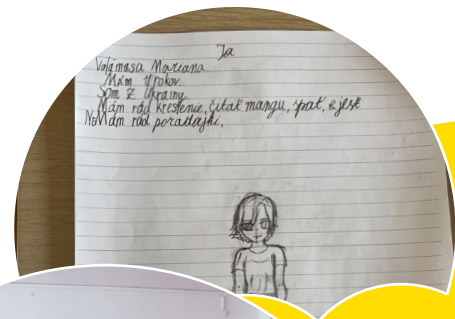 Ja
Volámasa Mariana
Mám rokov.
Som z Ukrainy
Mám rád kreslenie, čitať mangu, spať, a jesť
NeMám rád poradajki.